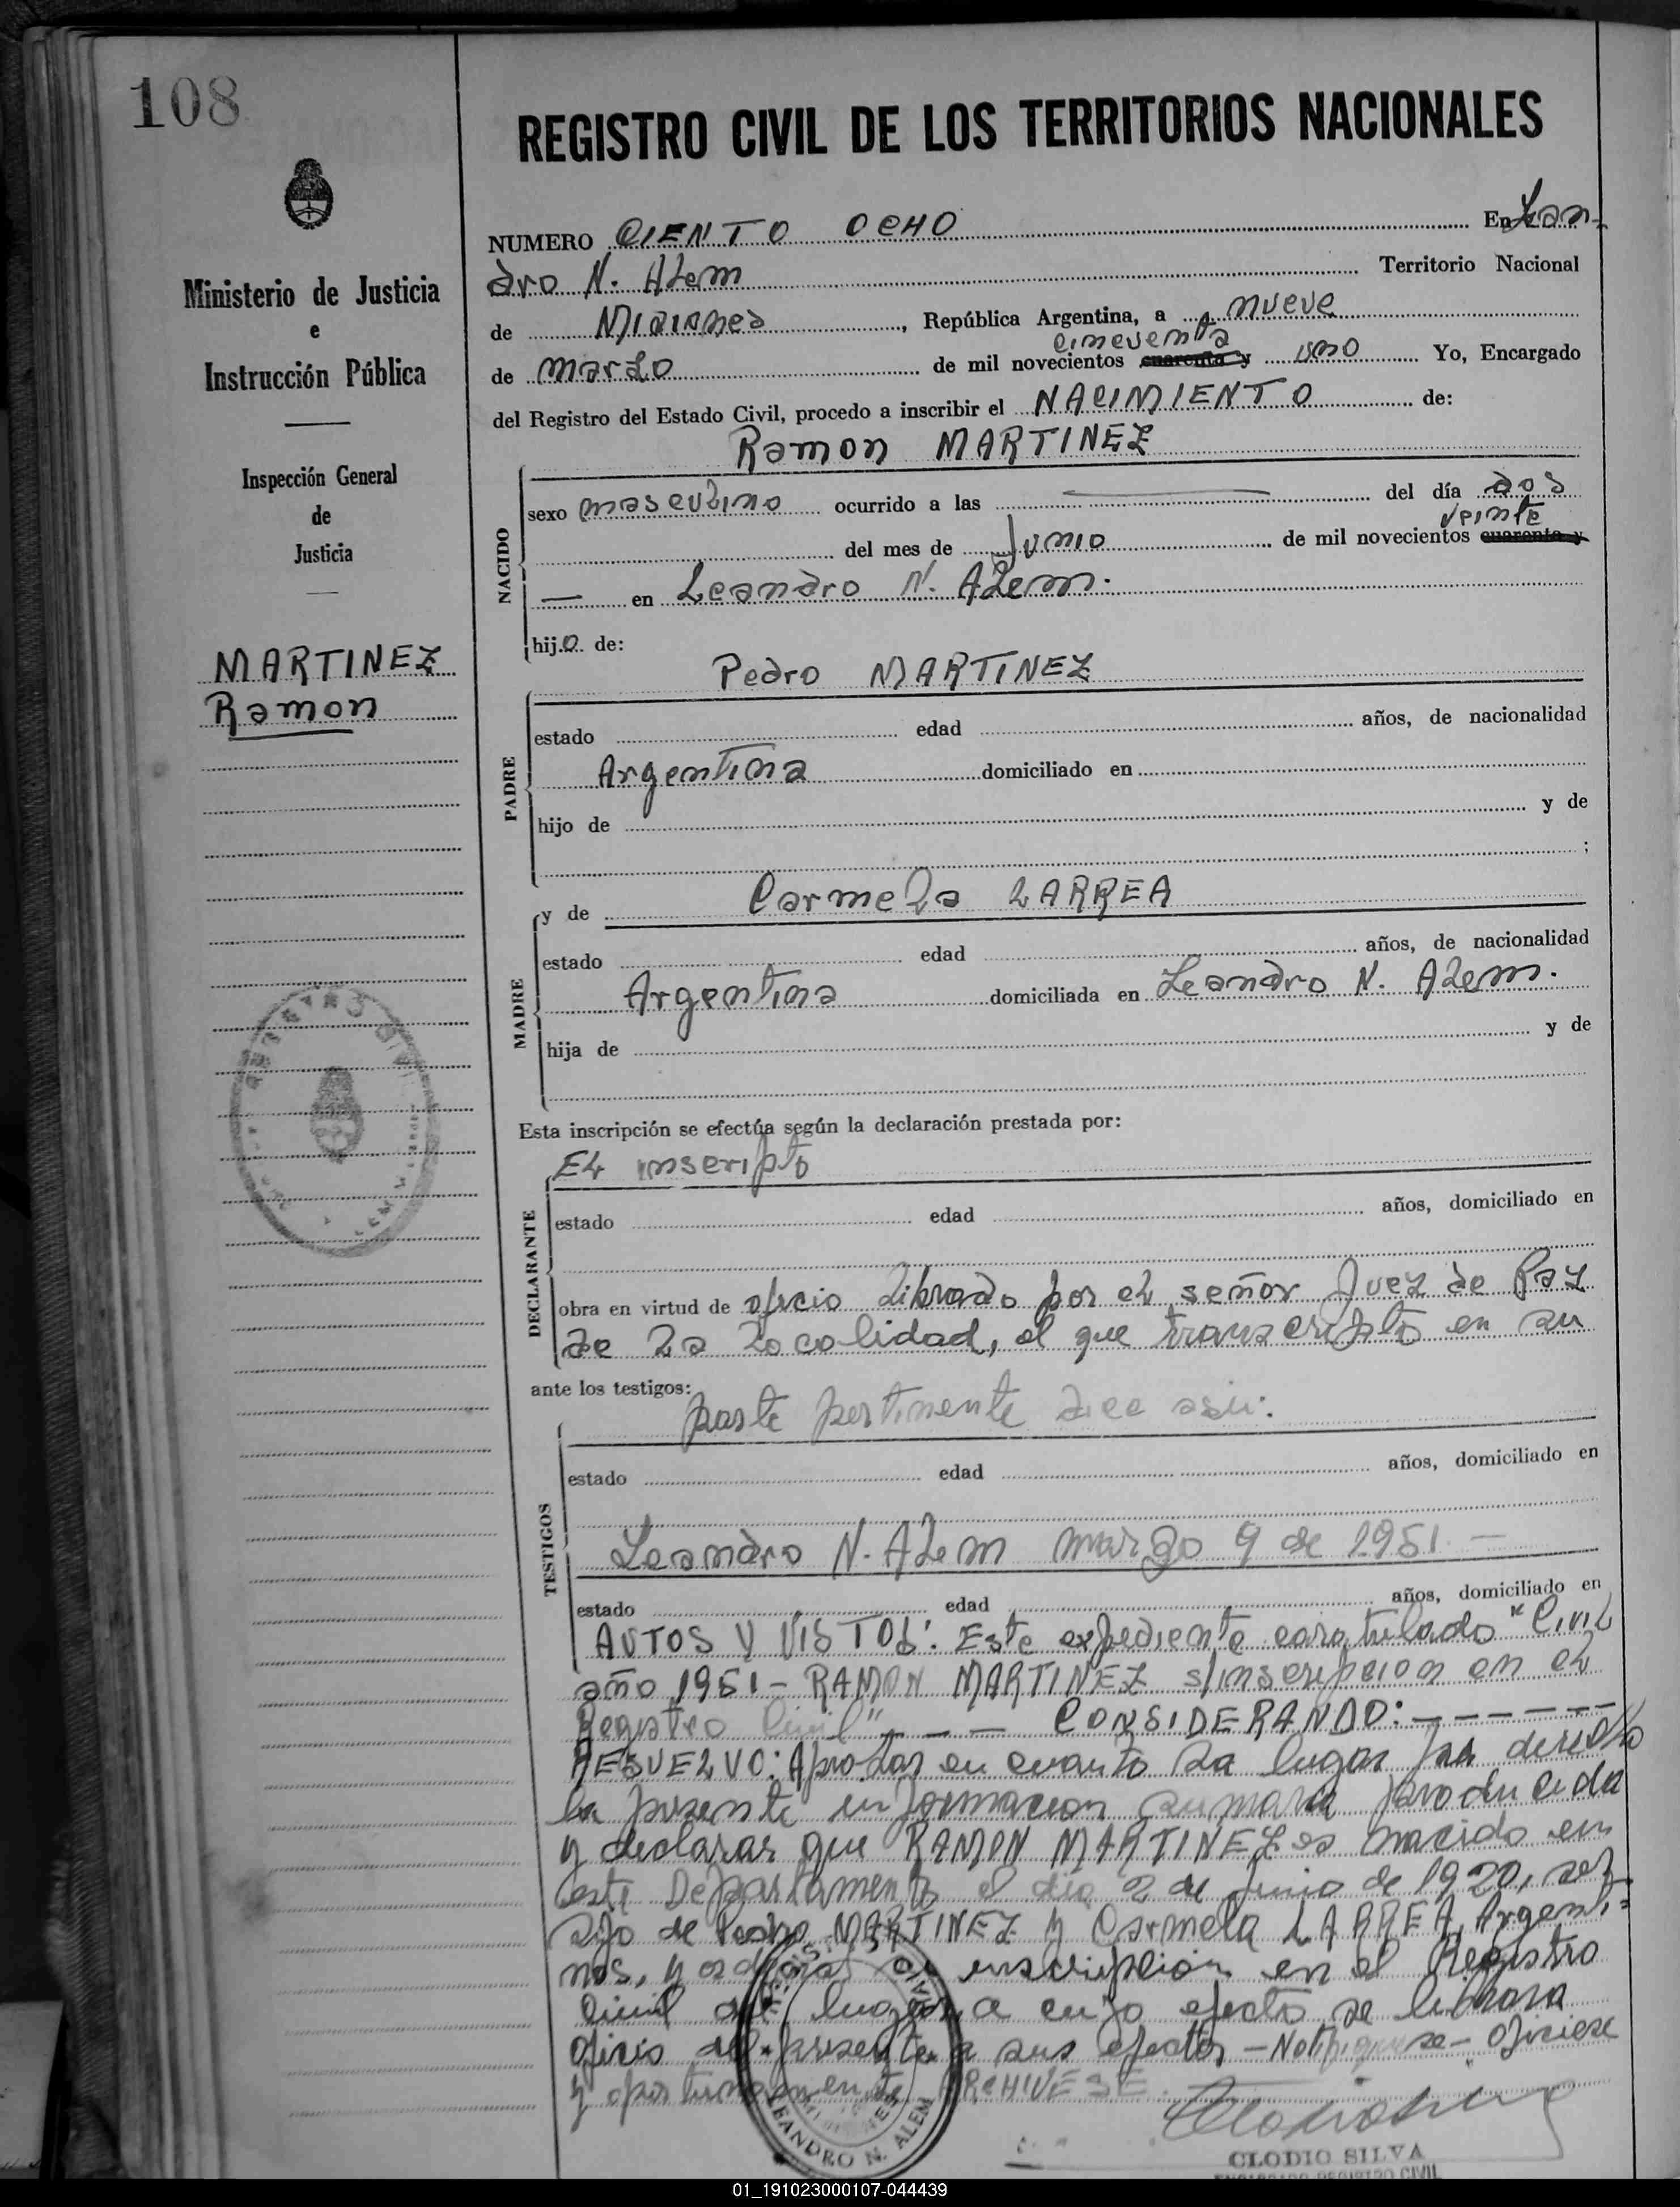 108
REGISTRO CIVIL DE LOS TERRITORIOS NACIONALES
NUMERO CIENTO OCHO En Lean-
dro N. Alem Territorio Nacional
de Misiones, República Argentina, a nueve
de marzo de mil novecientos cuarenta y cincuenta uno Yo, Encargado
del Registro del Estado Civil, procedo a inscribir el NACIMIENTO de:
Ramon MARTINEZ
Ministerio de Justicia
e
Instrucción Pública
Inspección General
de
Justicia
MARTINEZ
Ramon
NACIDO
sexo masculino ocurrido a las — del día dos
del mes de Junio de mil novecientos cuarenta y veinte
— en Leandro N. Alem.
hijo de:
Pedro MARTINEZ
PADRE
estado edad años, de nacionalidad
Argentina domiciliado en
hijo de y de
;
y de Carmela LARREA
MADRE
estado edad años, de nacionalidad
Argentina domiciliada en Leandro N. Alem.
hija de y de
Esta inscripción se efectúa según la declaración prestada por:
El inscripto
DECLARANTE
estado edad años, domiciliado en
obra en virtud de oficio librado por el señor Juez de Paz
de la localidad, el que transcripto en su
ante los testigos: parte pertinente dice asi:
TESTIGOS
estado edad años, domiciliado en
Leandro N. Alem marzo 9 de 1951 —
estado edad años, domiciliado en
AUTOS Y VISTOS: Este expediente caratulado "Civil
año 1951 - RAMON MARTINEZ s/inscripcion en el
Registro Civil", - - - CONSIDERANDO: - - - - - -
RESUELVO: Aprobar en cuanto ha lugar por derecho
la presente informacion sumaria producida
y declarar que RAMON MARTINEZ es nacido en
este Departamento el dia 2 de Junio de 1920,
hijo de Pedro MARTINEZ y Carmela LARREA, Argenti=
nos, y ordenar su inscripción en el Registro
Civil del lugar, a cuyo efecto se librara
oficio del presente a sus efectos - Notifiquese - Oficiese
y oportunamente ARCHIVESE.
LEANDRO N. ALEM
CLODIO SILVA
ENCARGADO REGISTRO CIVIL
01_191023000107-044439